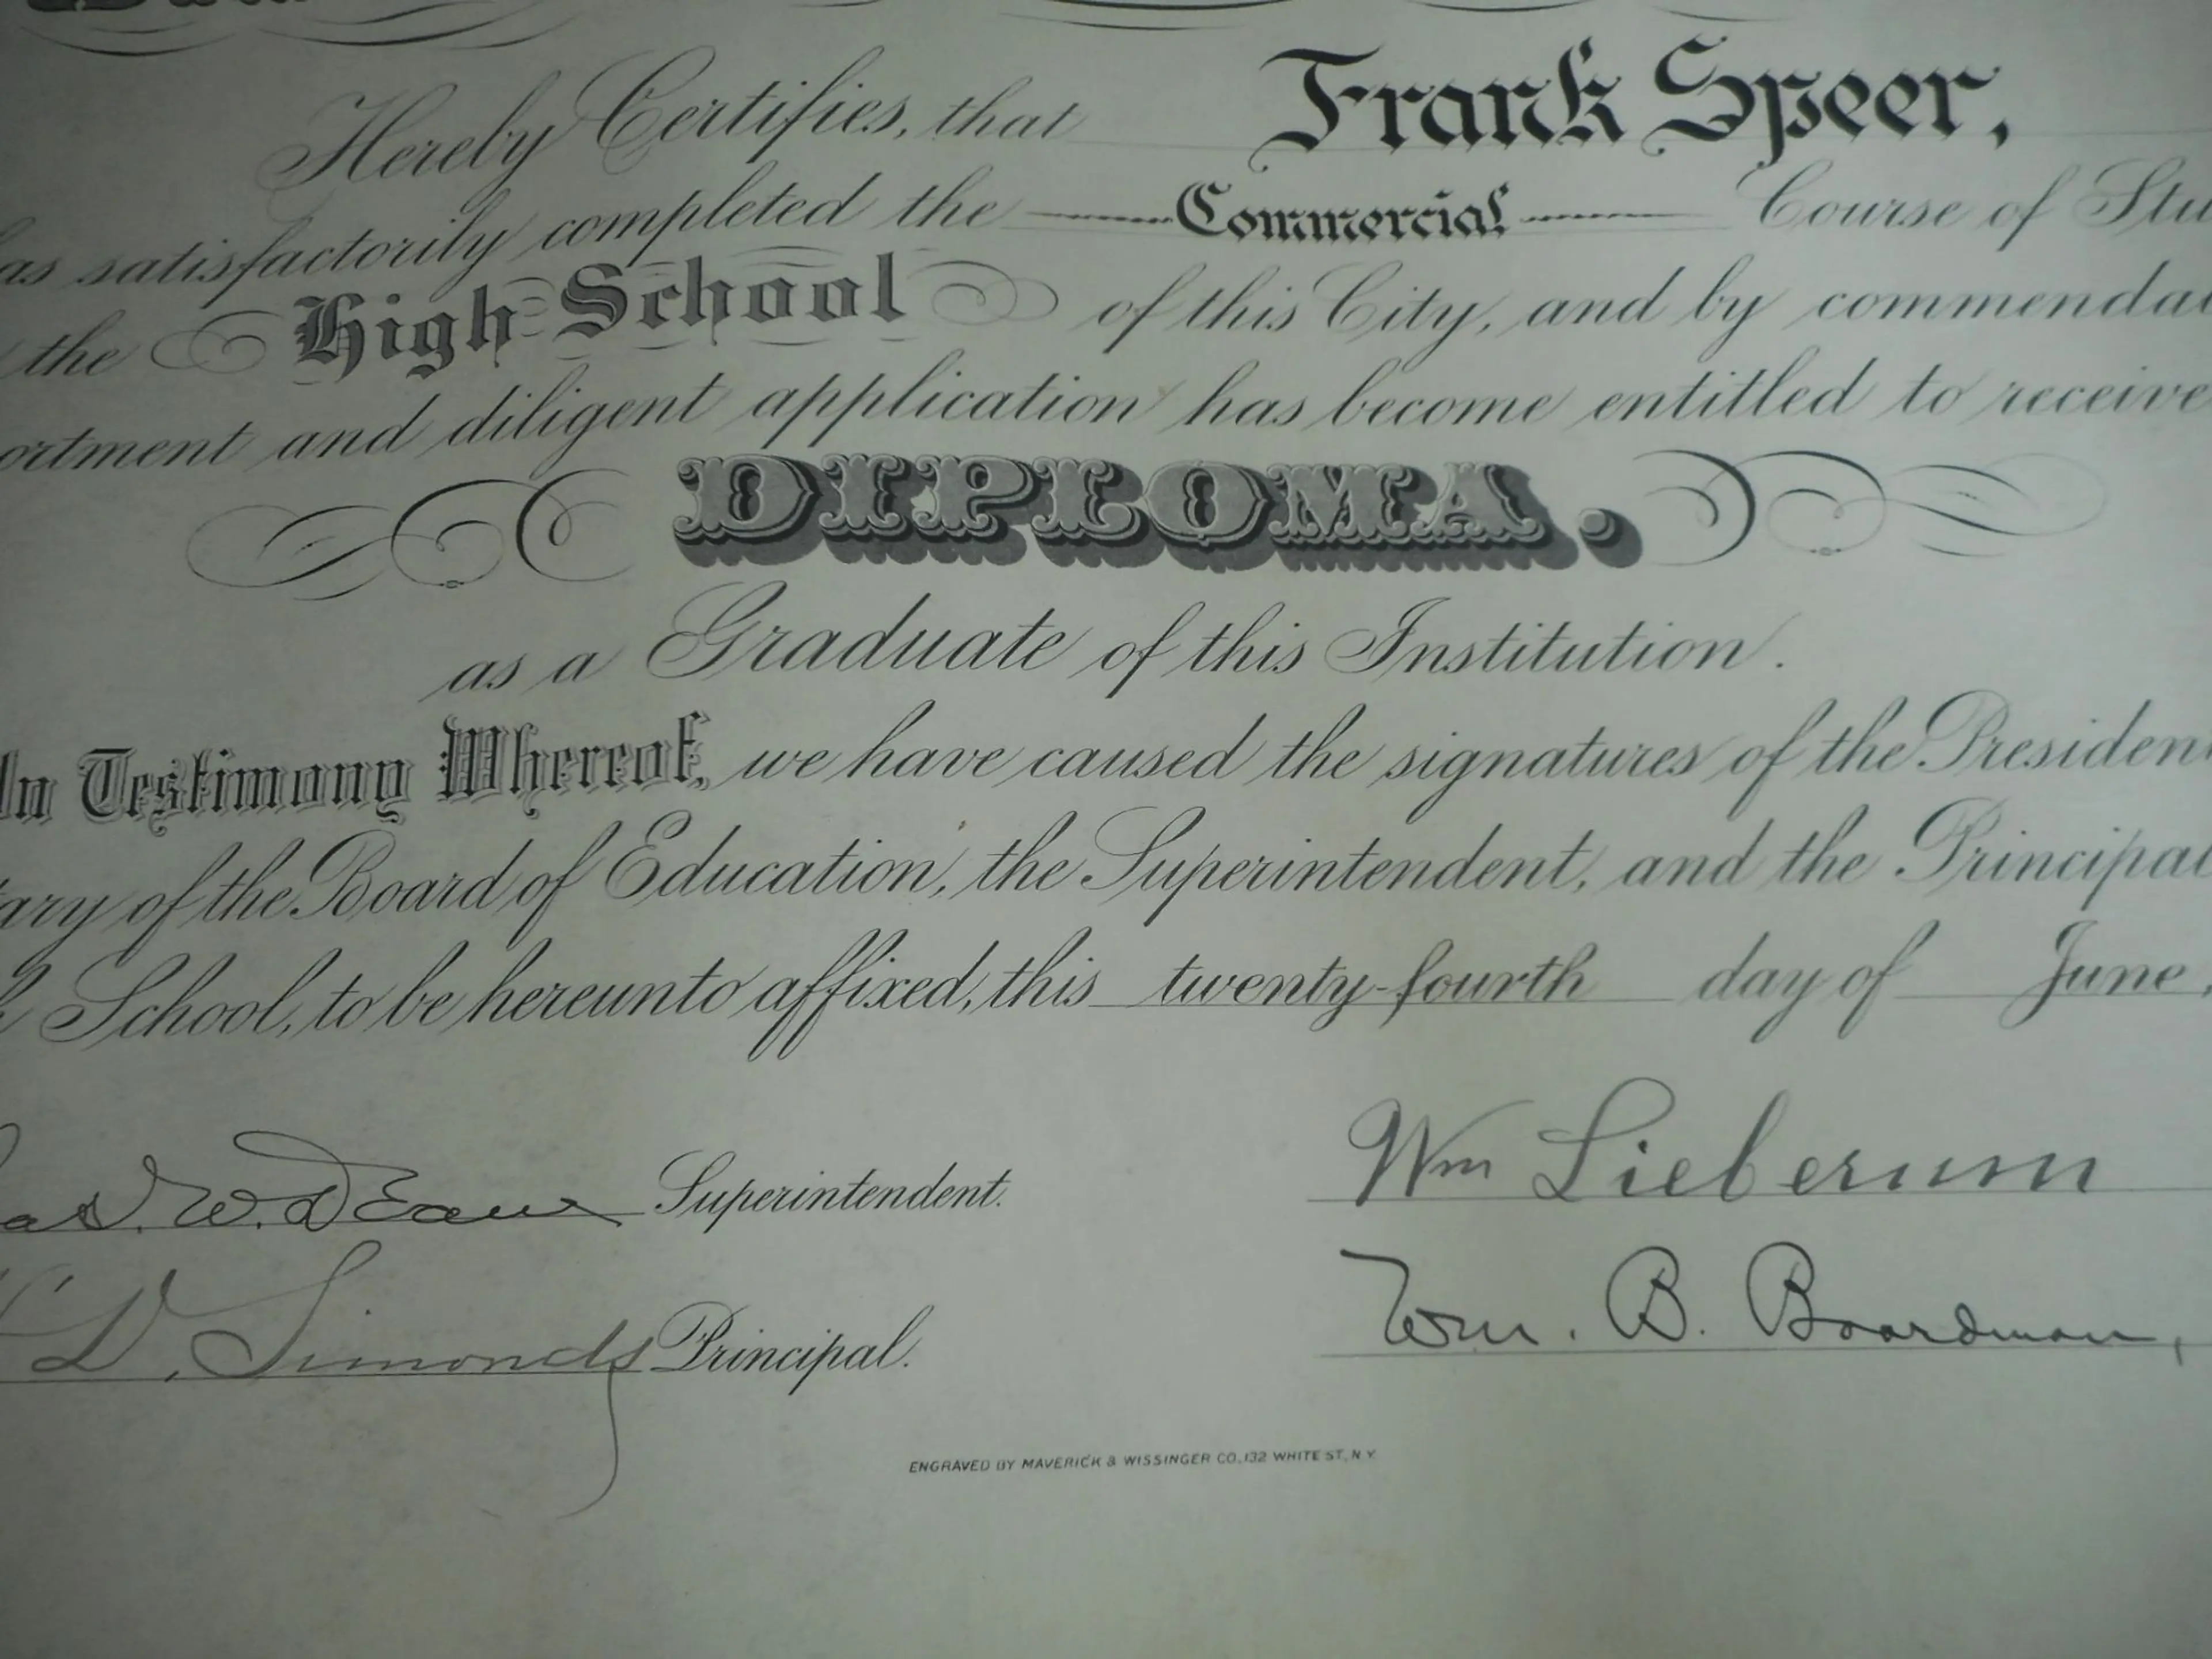 Hereby Certifies, that Frank Speer,
as satisfactorily completed the Commercial Course of Stu
the High School of this City, and by commenda
ortment and diligent application has become entitled to receive
DIPLOMA.
as a Graduate of this Institution.
In Testimony Whereof, we have caused the signatures of the Presiden
ary of the Board of Education, the Superintendent, and the Principal
School, to be hereunto affixed, this twenty-fourth day of June,
W. Superintendent.
D. Simonds Principal.
Wm Lieberum
Wm. B. Boardman,
ENGRAVED BY MAVERICK & WISSINGER CO., 132 WHITE ST., N.Y.